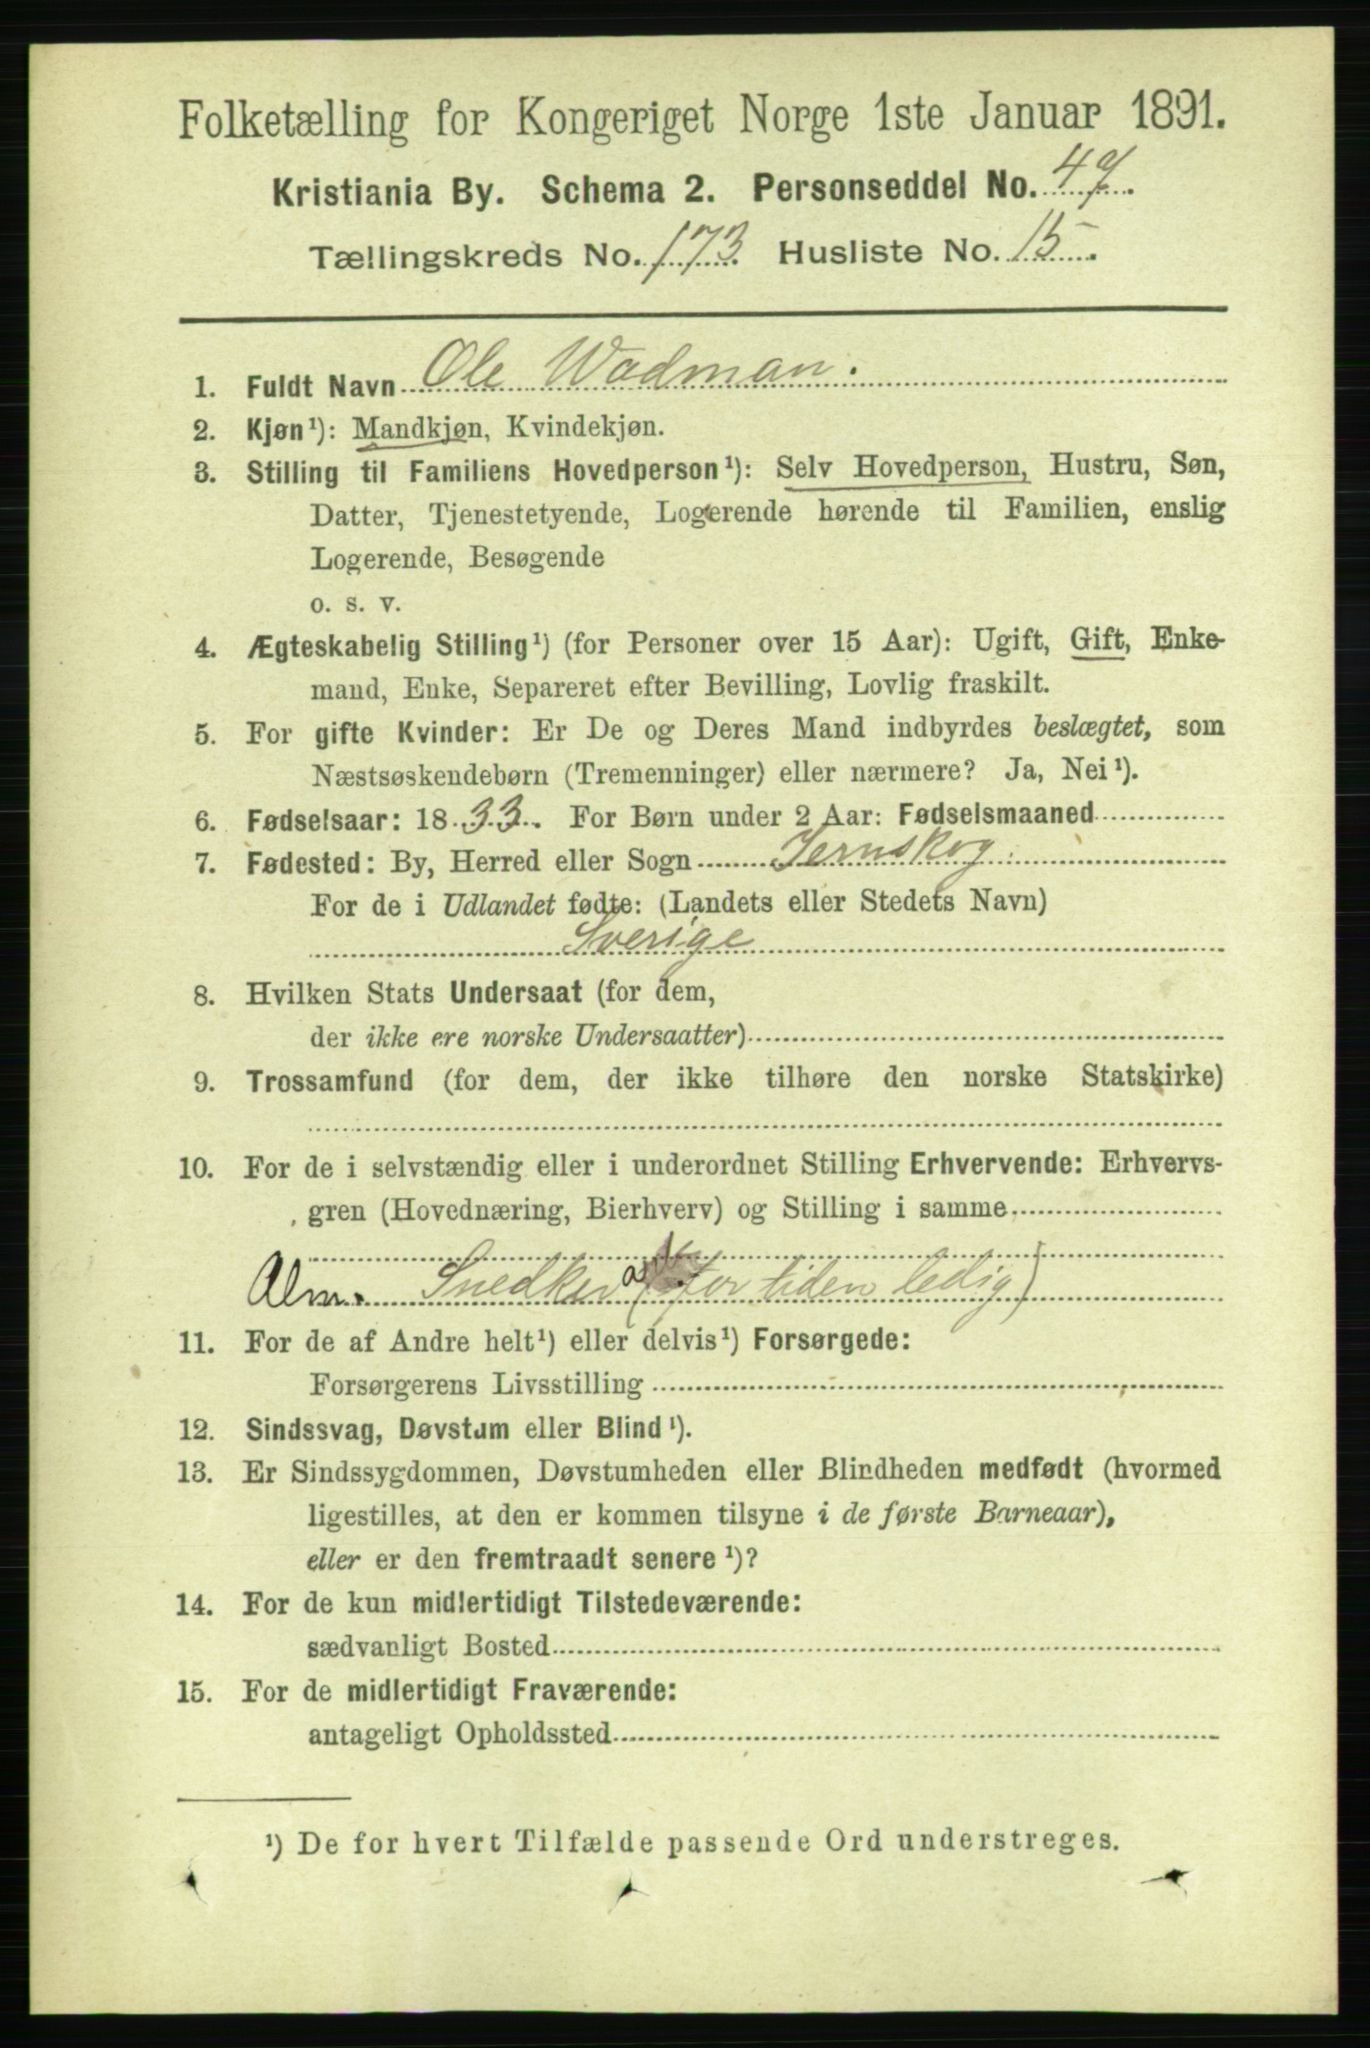 Folketælling for Kongeriget Norge 1ste Januar 1891.
Kristiania By. Schema 2. Personseddel No. 49.
Tællingskreds No. 173. Husliste No. 15.
1. Fuldt Navn Ole Wadman.
2. Kjøn¹): Mandkjøn, Kvindekjøn.
3. Stilling til Familiens Hovedperson¹): Selv Hovedperson, Hustru, Søn,
Datter, Tjenestetyende, Logerende hørende til Familien, enslig
Logerende, Besøgende
o. s. v.
4. Ægteskabelig Stilling¹) (for Personer over 15 Aar): Ugift, Gift, Enke-
mand, Enke, Separeret efter Bevilling, Lovlig fraskilt.
5. For gifte Kvinder: Er De og Deres Mand indbyrdes beslægtet, som
Næstsøskendebørn (Tremenninger) eller nærmere? Ja, Nei¹).
6. Fødselsaar: 1833. For Børn under 2 Aar: Fødselsmaaned
7. Fødested: By, Herred eller Sogn Jernskog.
For de i Udlandet fødte: (Landets eller Stedets Navn)
Sverige
8. Hvilken Stats Undersaat (for dem,
der ikke ere norske Undersaatter)
9. Trossamfund (for dem, der ikke tilhøre den norske Statskirke)
10. For de i selvstændig eller i underordnet Stilling Erhvervende: Erhvervs-
gren (Hovednæring, Bierhverv) og Stilling i samme
Alm. Snedker (for tiden ledig)
11. For de af Andre helt¹) eller delvis¹) Forsørgede:
Forsørgerens Livsstilling
12. Sindssvag, Døvstum eller Blind¹).
13. Er Sindssygdommen, Døvstumheden eller Blindheden medfødt (hvormed
ligestilles, at den er kommen tilsyne i de første Barneaar),
eller er den fremtraadt senere¹)?
14. For de kun midlertidigt Tilstedeværende:
sædvanligt Bosted
15. For de midlertidigt Fraværende:
antageligt Opholdssted
¹) De for hvert Tilfælde passende Ord understreges.